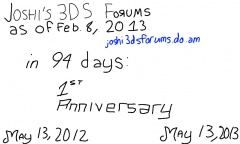 JOSHI'S 3DS FORUMS
as of Feb. 8, 2013
joshi3dsforums.do.am
in 94 days:
1ST
Anniversary
MAY 13, 2012
MAY 13, 2013